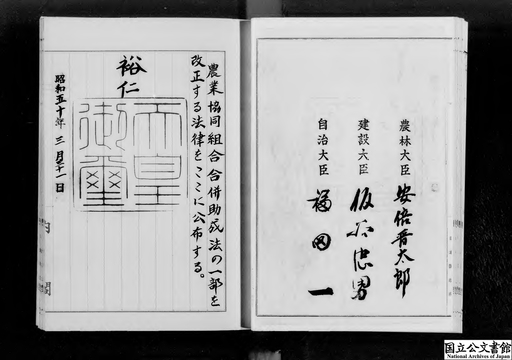 農林大臣 安倍晋太郎
建設大臣 仮谷忠男
自治大臣 福田一
農業協同組合合併助成法の一部を
改正する法律をここに公布する。
裕仁
天皇
御璽
昭和五十年三月三十一日
内閣
国立公文書館
National Archives of Japan